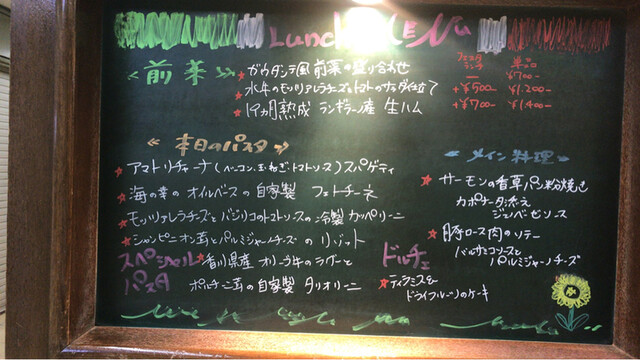 Lunch MENU
《前菜》
フェスタランチ
単品
★ガウタンテ風 前菜の盛り合わせ
ー ¥700-
★水牛のモッツァレラチーズとトマトのサラダ仕立て
+¥500- ¥1.200-
★14ヵ月熟成 ランギラーノ産 生ハム
+¥700- ¥1.400-
《本日のパスタ》
★アマトリチャーナ(ベーコン、玉ねぎ・トマトソース)スパゲティ
★海の幸の オイルベースの自家製 フェトチーネ
★モッツァレラチーズとバジリコのトマトソースの冷製カッペリーニ
★シャンピニオン茸とパルミジャーノチーズ の リゾット
スペシャルパスタ
★香川県産 オリーブ牛のラグーと
ポルチーニ茸の自家製 タリオリーニ
《メイン料理》
★サーモンの香草パン粉焼き
カポナータ添え
ジェノベーゼソース
★豚ロース肉のソテー
バルサミコソースと
パルミジャーノチーズ
ドルチェ
★ティラミスと
ドライフルーツのケーキ